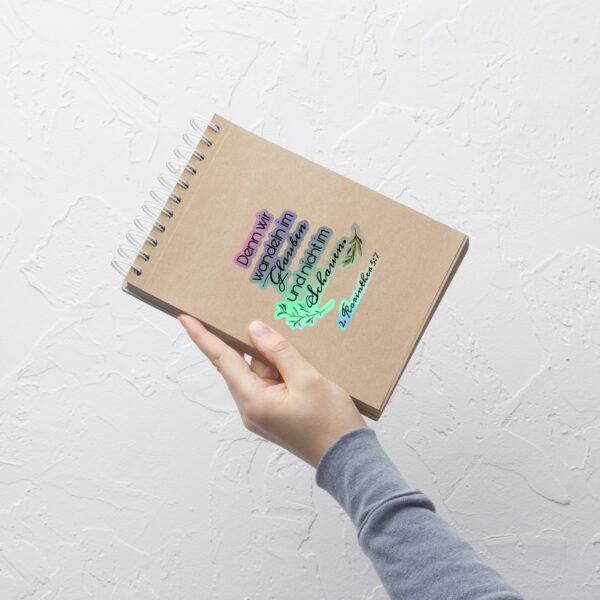 Denn wir
wandeln im
Glauben
und nicht im
Schauen.
2. Korinther 5:7